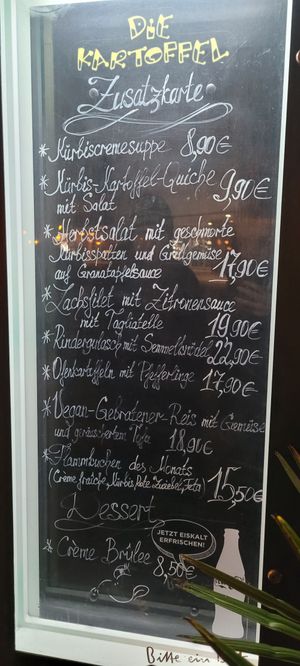 DiE
KARTOFFEL
Zusatzkarte
* Kürbiscremesuppe 8,90€
* Kürbis-Kartoffel-Quiche 9,90€
mit Salat
* Herbstsalat mit geschmorte
Kürbisspalten und Grillgemüse
auf Granatapfelsauce 17,90€
* Lachsfilet mit Zitronensauce
mit Tagliatelle 19,90€
* Rindergulasch mit Semmelknödel 22,90€
* Ofenkartoffeln mit Pfifferlinge
17,90€
* Vegan-Gebratener-Reis mit Gemüse
und geräuchertem Tofu
18,90€
* Flammkuchen des Monats
(Creme fraîche, Kürbis, Rote Zwiebel, Feta) 15,50€
Dessert
JETZT EISKALT
ERFRISCHEN!
* Crème Brûlee
8,50€
Bitte ein